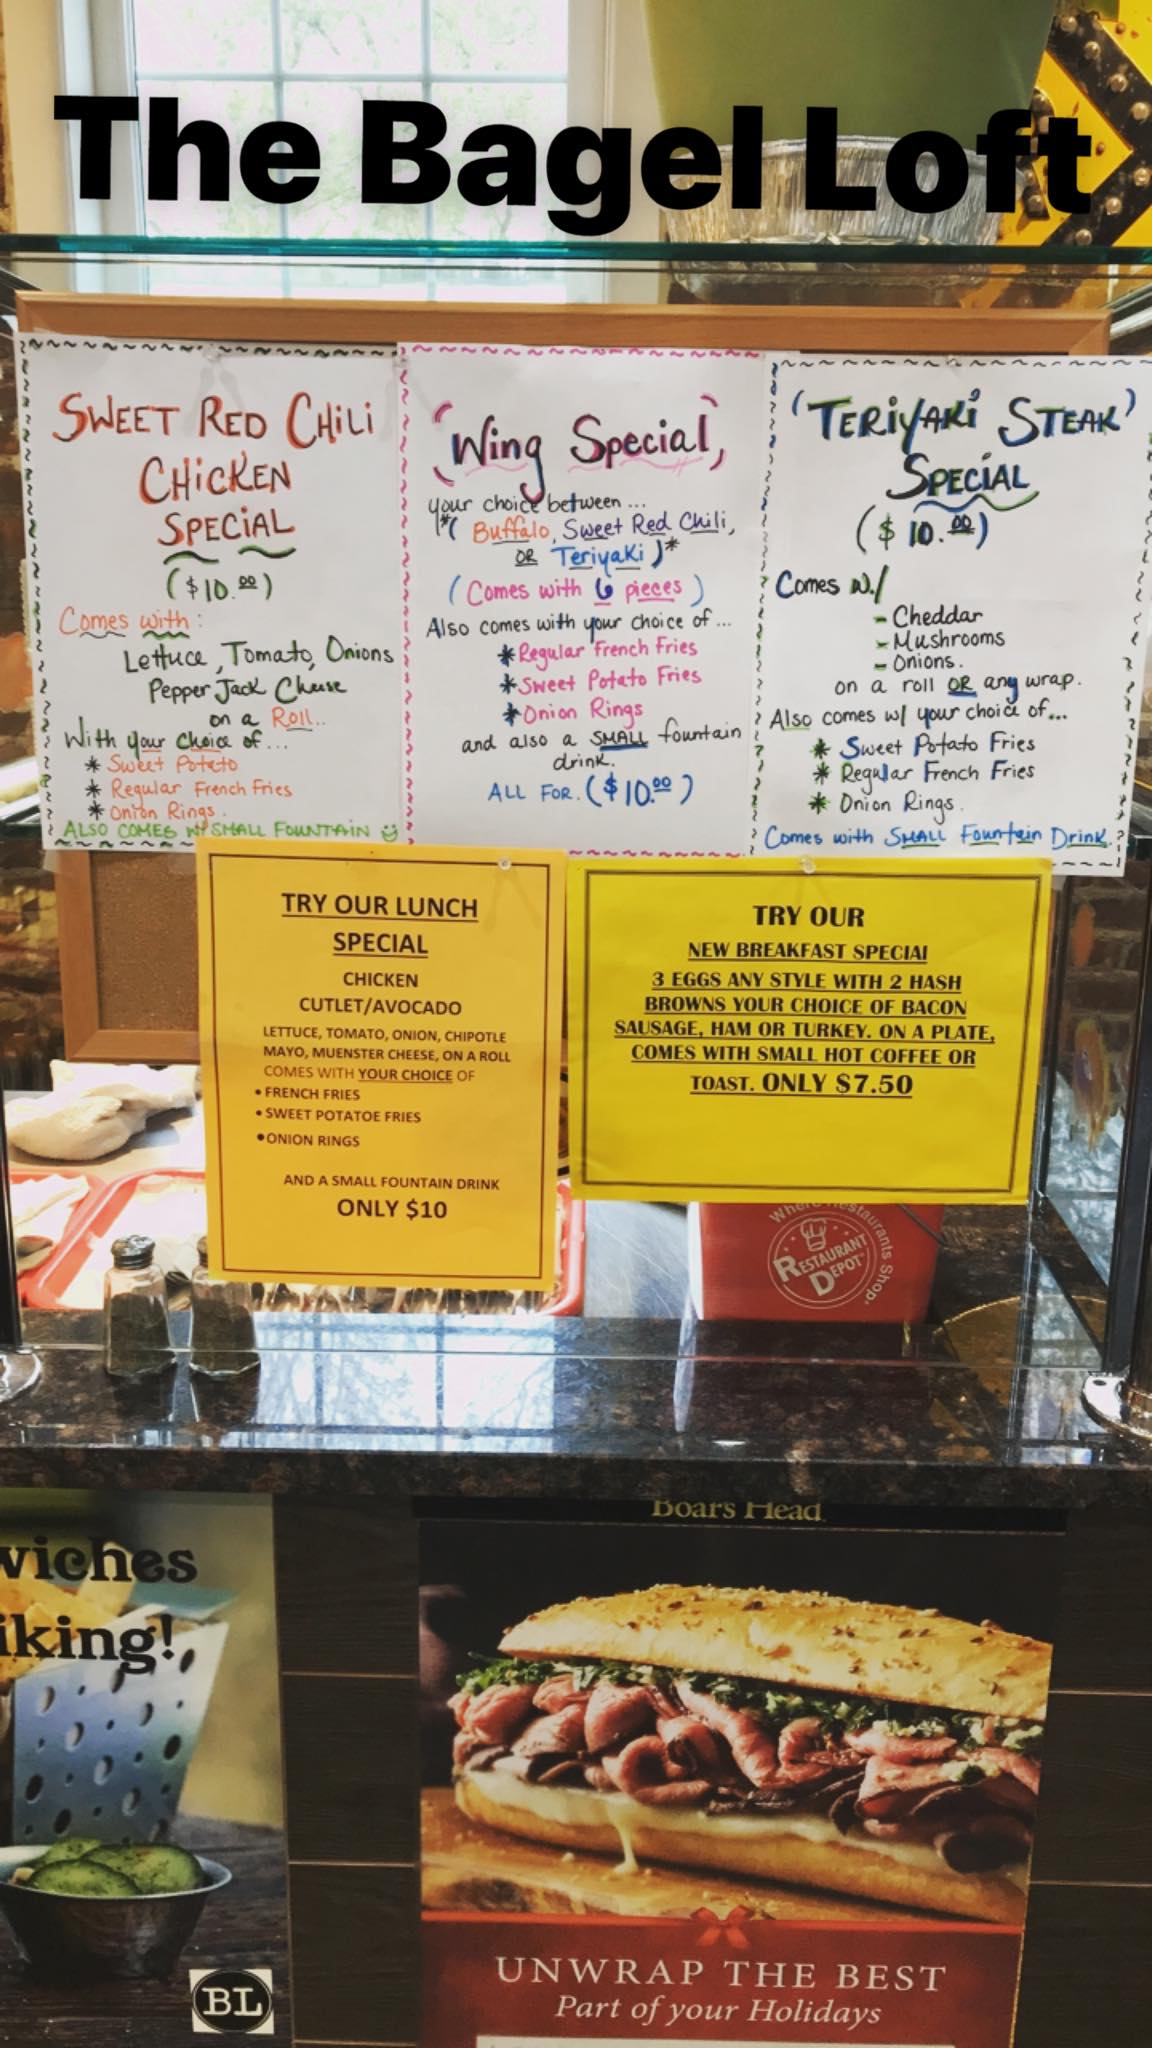 The Bagel Loft
SWEET RED CHiLi
CHiCKEN
SPECiAL
($10.00)
Comes with:
Lettuce, Tomato, Onions
Pepper Jack Cheese
on a Roll..
With your choice of...
* Sweet Potato
* Regular French Fries
* Onion Rings.
ALSO COMES W/ SMALL FOUNTAIN
(Wing Special,)
your choice between...
*( Buffalo, Sweet Red Chili,
OR Teriyaki )*
(Comes with 6 pieces)
Also comes with your choice of...
*Regular French Fries
*Sweet Potato Fries
*Onion Rings
and also a SMALL fountain
drink.
ALL FOR. ($10.00)
(TERiYAKi STEAK)
SPECiAL
($10.00)
Comes w./
- Cheddar
- Mushrooms
- Onions.
on a roll OR any wrap.
Also comes w/ your choice of...
* Sweet Potato Fries
* Regular French Fries
* Onion Rings.
Comes with SMALL Fountain Drink.
TRY OUR LUNCH
SPECIAL
CHICKEN
CUTLET/AVOCADO
LETTUCE, TOMATO, ONION, CHIPOTLE
MAYO, MUENSTER CHEESE, ON A ROLL
COMES WITH YOUR CHOICE OF
• FRENCH FRIES
• SWEET POTATOE FRIES
• ONION RINGS
AND A SMALL FOUNTAIN DRINK
ONLY $10
TRY OUR
NEW BREAKFAST SPECIAl
3 EGGS ANY STYLE WITH 2 HASH
BROWNS YOUR CHOICE OF BACON
SAUSAGE, HAM OR TURKEY. ON A PLATE,
COMES WITH SMALL HOT COFFEE OR
TOAST. ONLY $7.50
Where Restaurants Shop
RESTAURANT
DEPOT
Boar's Head
wiches
iking!
BL
UNWRAP THE BEST
Part of your Holidays